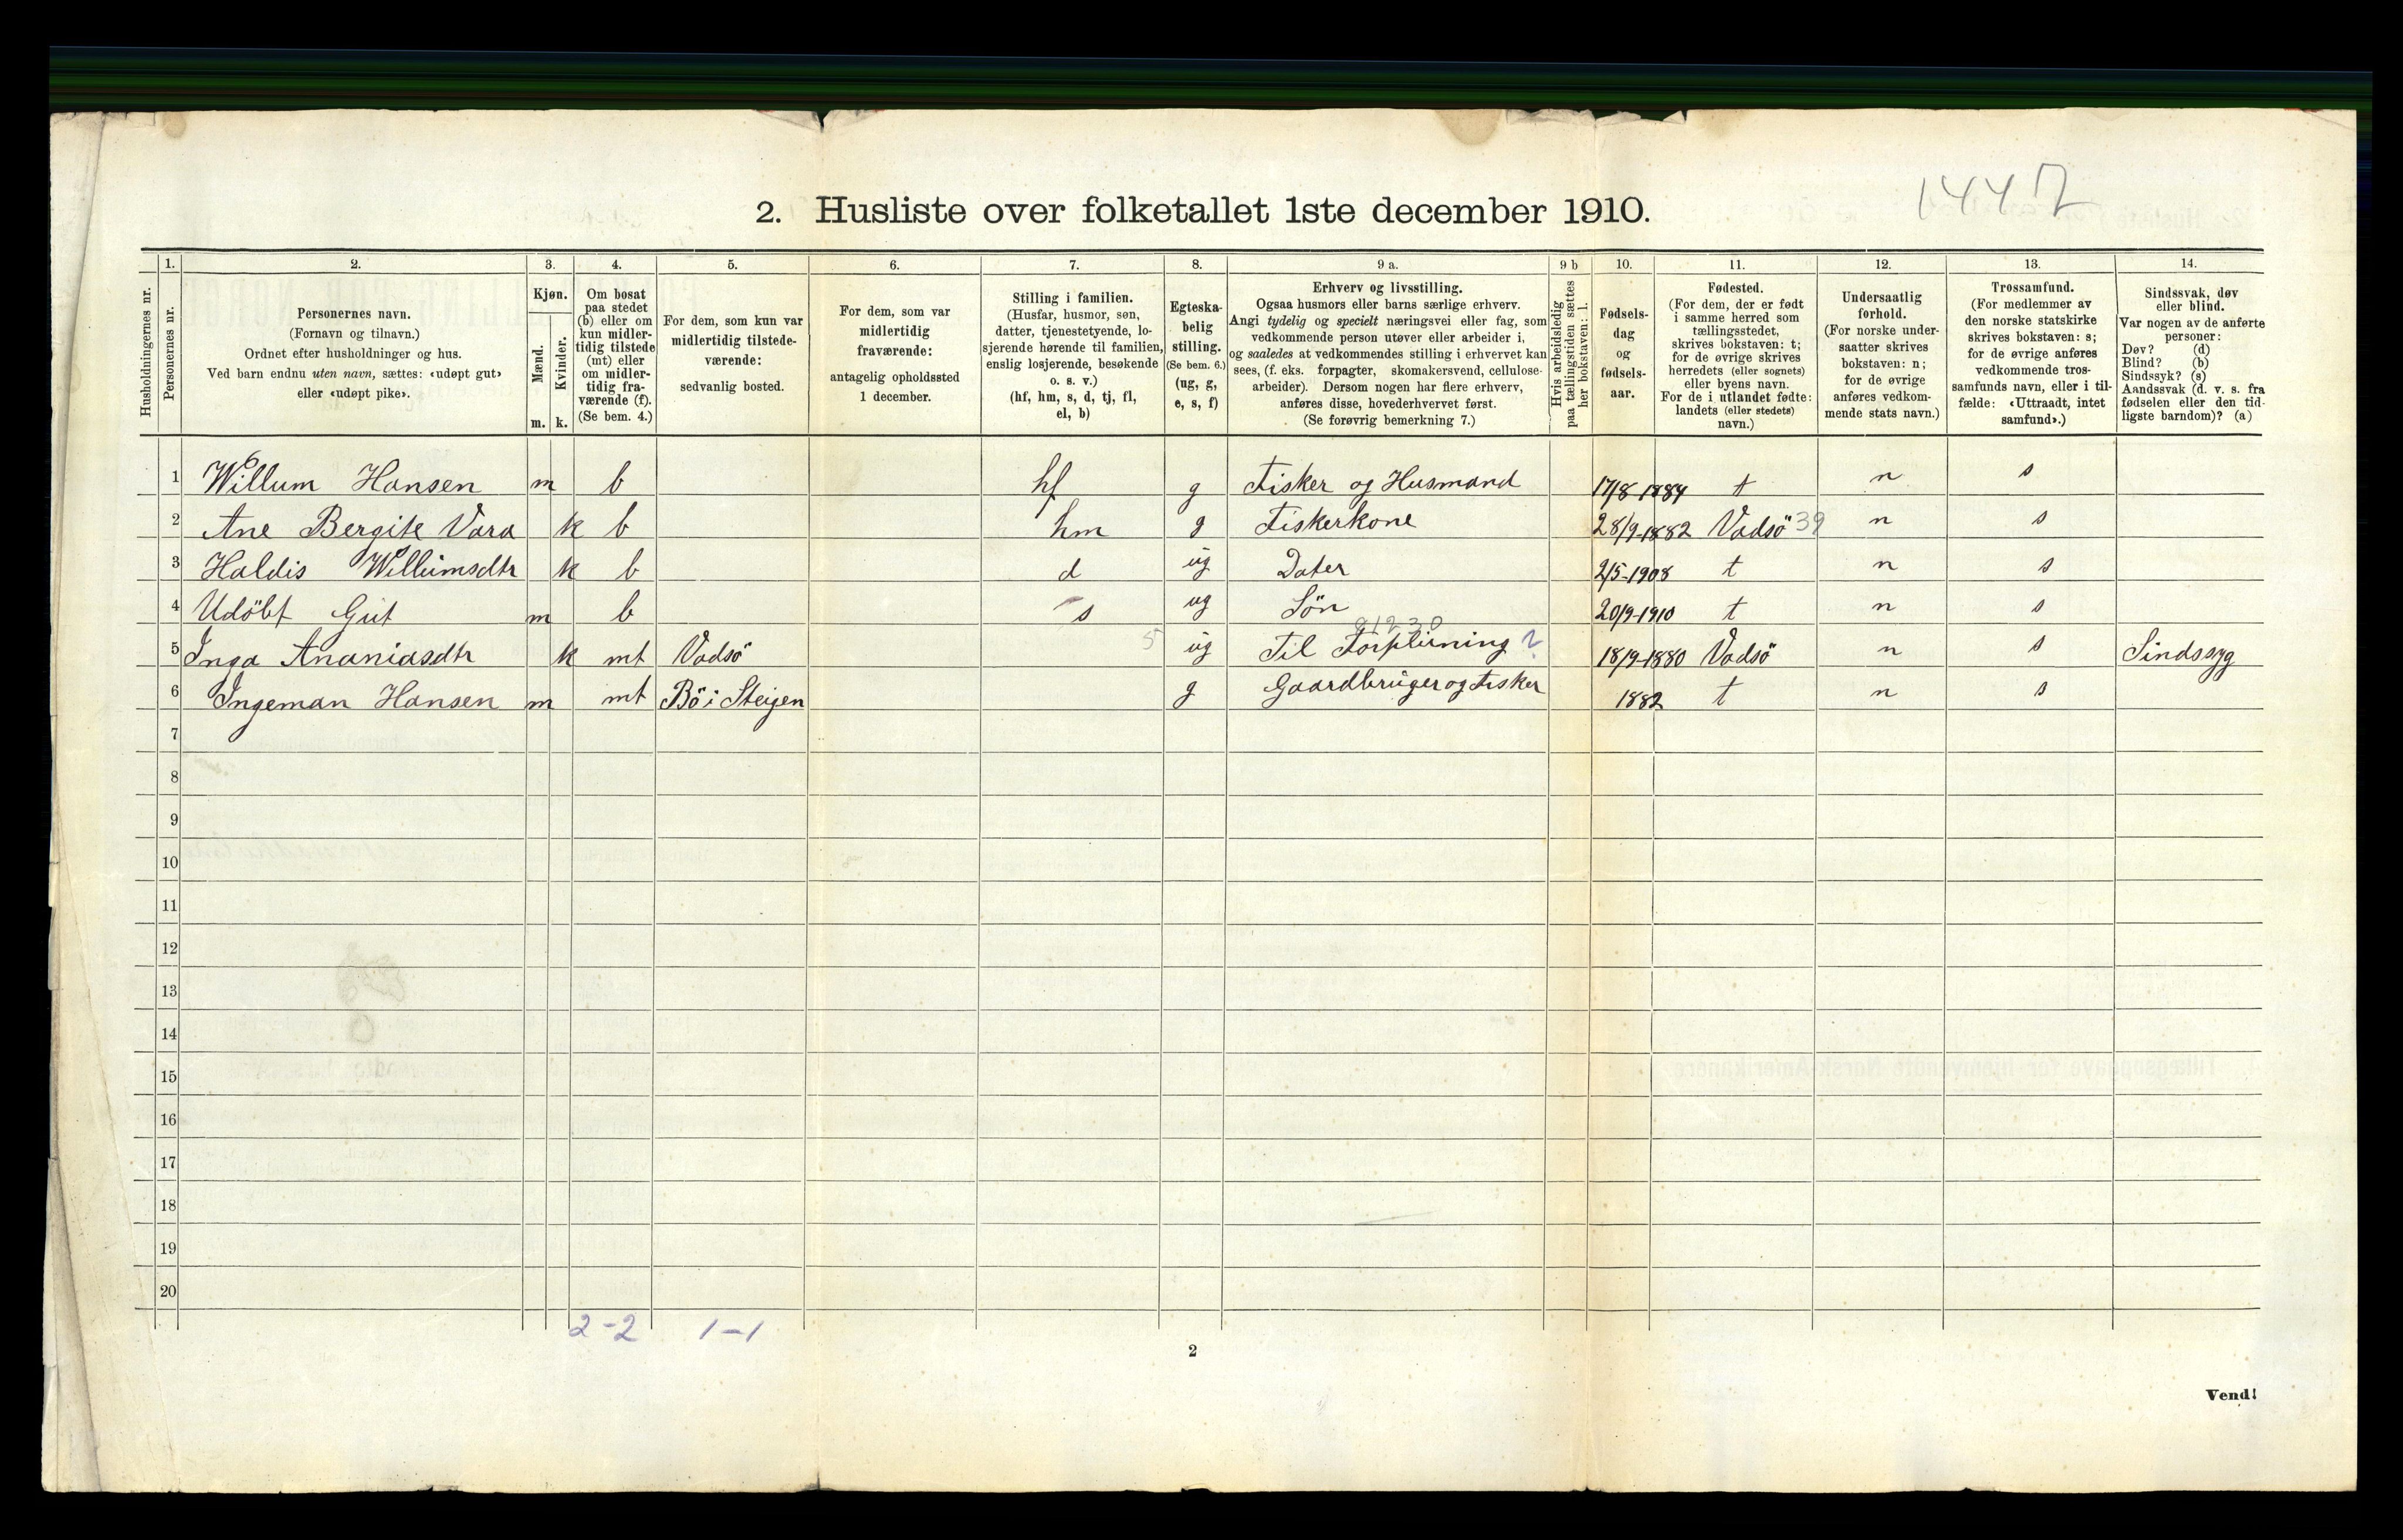 1447
2. Husliste over folketallet 1ste december 1910.
Husholdningernes nr.
1.
Personernes nr.
2.
Personernes navn.
(Fornavn og tilnavn.)
Ordnet efter husholdninger og hus.
Ved barn endnu uten navn, sættes: «udøpt gut»
eller «udøpt pike».
3.
Kjøn.
Mænd.
Kvinder.
m. k.
4.
Om bosat
paa stedet
(b) eller om
kun midler-
tidig tilstede
(mt) eller
om midler-
tidig fra-
værende (f).
(Se bem. 4.)
5.
For dem, som kun var
midlertidig tilstede-
værende:
sedvanlig bosted.
6.
For dem, som var
midlertidig
fraværende:
antagelig opholdssted
1 december.
7.
Stilling i familien.
(Husfar, husmor, søn,
datter, tjenestetyende, lo-
sjerende hørende til familien,
enslig losjerende, besøkende
o. s. v.)
(hf, hm, s, d, tj, fl,
el, b)
8.
Egteska-
belig
stilling.
(Se bem. 6.)
(ug, g,
e, s, f)
9 a.
Erhverv og livsstilling.
Ogsaa husmors eller barns særlige erhverv.
Angi tydelig og specielt næringsvei eller fag, som
vedkommende person utøver eller arbeider i,
og saaledes at vedkommendes stilling i erhvervet kan
sees, (f. eks. forpagter, skomakersvend, cellulose-
arbeider). Dersom nogen har flere erhverv,
anføres disse, hovederhvervet først.
(Se forøvrig bemerkning 7.)
9 b
Hvis arbeidsledig
paa tællingstiden sættes
her bokstaven: l.
10.
Fødsels-
dag
og
fødsels-
aar.
11.
Fødested.
(For dem, der er født
i samme herred som
tællingsstedet,
skrives bokstaven: t;
for de øvrige skrives
herredets (eller sognets)
eller byens navn.
For de i utlandet fødte:
landets (eller stedets)
navn.)
12.
Undersaatlig
forhold.
(For norske under-
saatter skrives
bokstaven: n;
for de øvrige
anføres vedkom-
mende stats navn.)
13.
Trossamfund.
(For medlemmer av
den norske statskirke
skrives bokstaven: s;
for de øvrige anføres
vedkommende tros-
samfunds navn, eller i til-
fælde: «Uttraadt, intet
samfund».)
14.
Sindssvak, døv
eller blind.
Var nogen av de anførte
personer:
Døv? (d)
Blind? (b)
Sindssyk? (s)
Aandssvak (d. v. s. fra
fødselen eller den tid-
ligste barndom)? (a)
1 Willum Hansen m b hf g Fisker og Husmand 17/8-1884 t n s
2 Ane Bergite Vara k b hm g Fiskerkone 28/9-1882 Vadsö 39 n s
3 Haldis Willumsdtr k b d ug Dater 2/5-1908 t n s
4 Udöbt Gut m b s ug Sön 20/9-1910 t n s
5 Inga Ananiasdtr k mt Vadsö 5 ug Til Forpleining ? 18/9-1880 Vadsö n s Sindssyg
6 Ingeman Hansen m mt Bö i Steigen g Gaardbruger og Fisker 1882 t n s
7
8
9
10
11
12
13
14
15
16
17
18
19
20
2-2 1-1
2
Vend!